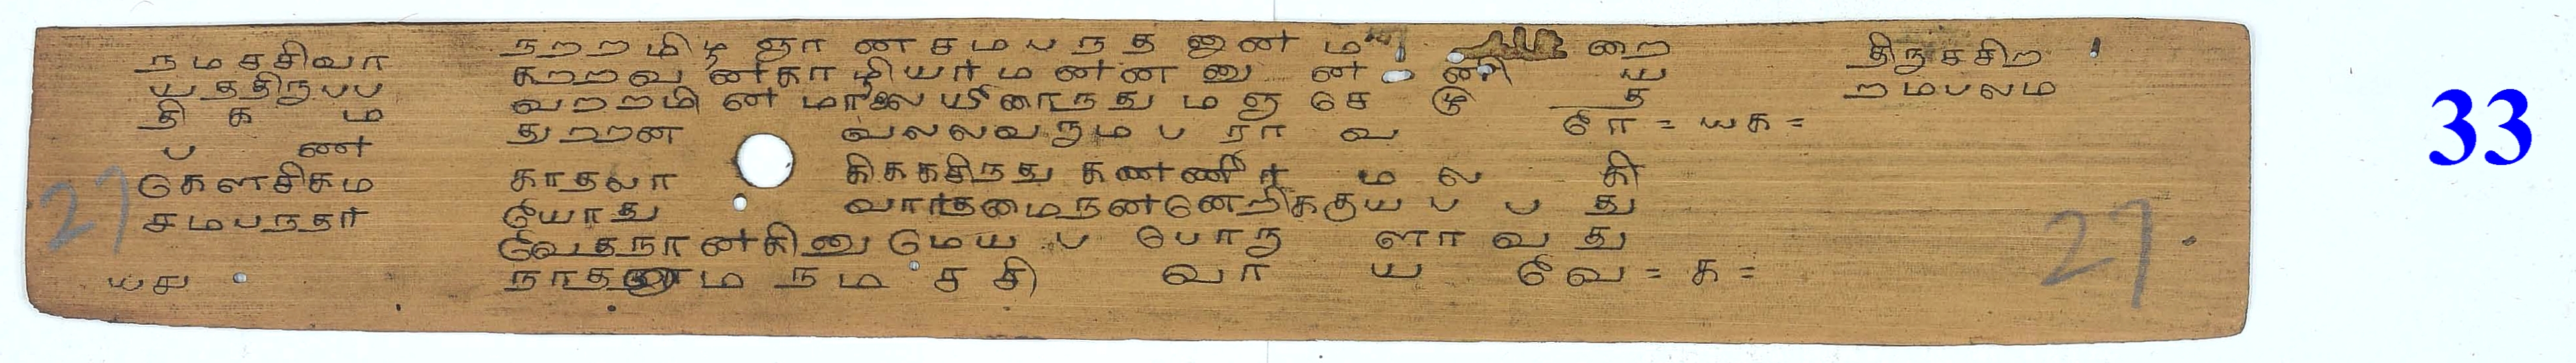 நமசசிவா
யததிருபப
திகம
பண
கௌசிகம
சமபநதர
யசு
நறறமிழ ஞானசமபநத னானம றை
கறறவ னகாழியரமனன னுன னிய
வறறமின மாலையீரைநதுமஞசெழுத
துறறன வலலவருமபராவ ரே = யக =
காதலா கிககசிநது கணணீர மலகி
யோது வாரதமைநனனெறிககுயபபது
வேதநானகினுமெயபபொருளாவது
நாதனாமநமசசிவாயவே = க =
திருசசிற
றமபலம
27
27
33